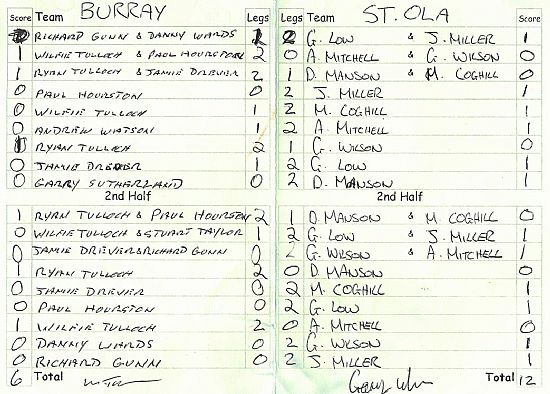 BURRAY ST. OLA
Score Team Legs Legs Team Score
0 RICHARD GUNN & DANNY WARDS 1 2 G. LOW & J. MILLER 1
1 WILFIE TULLOCH & PAUL HOURSTON 2 0 A. MITCHELL & G. WILSON 0
1 RYAN TULLOCH & JAMIE DREVER 2 1 D. MANSON & M. COGHILL 0
0 PAUL HOURSTON 0 2 J. MILLER 1
0 WILFIE TULLOCH 1 2 M. COGHILL 1
0 ANDREW WATSON 1 2 A. MITCHELL 1
1 RYAN TULLOCH 2 1 G. WILSON 0
0 JAMIE DREVER 1 2 G. LOW 1
0 GARRY SUTHERLAND 0 2 D. MANSON 1
2nd Half 2nd Half
1 RYAN TULLOCH & PAUL HOURSTON 2 1 D. MANSON & M. COGHILL 0
0 WILFIE TULLOCH & STUART TAYLOR 1 2 G. LOW & J. MILLER 1
0 JAMIE DREVER & RICHARD GUNN 0 2 G. WILSON & A. MITCHELL 1
1 RYAN TULLOCH 2 0 D. MANSON 0
0 JAMIE DREVER 0 2 M. COGHILL 1
0 PAUL HOURSTON 0 2 G. LOW 1
1 WILFIE TULLOCH 2 0 A. MITCHELL 0
0 DANNY WARDS 0 2 G. WILSON 1
0 RICHARD GUNN 0 2 J. MILLER 1
6 Total Total 12